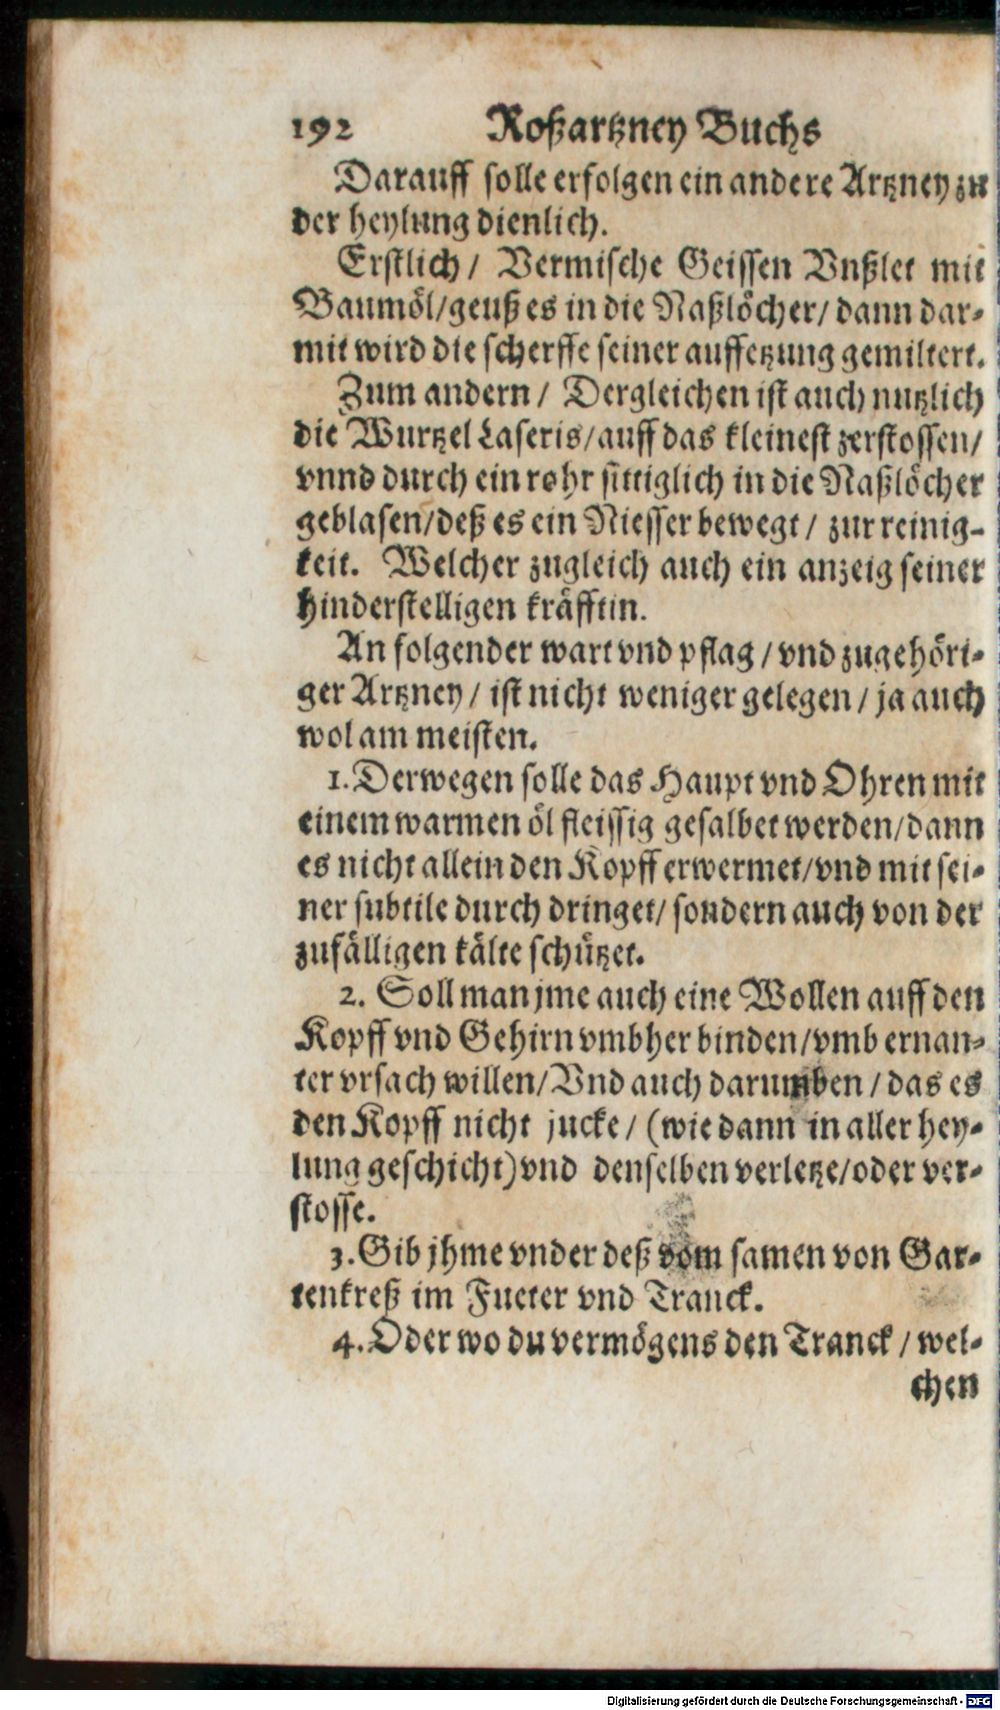 192 Roßartzney Buchs
Darauff solle erfolgen ein andere Artzney zu
der heylung dienlich.
Erstlich / Vermische Geissen Vnßlet mit
Baumöl/geuß es in die Naßlöcher/ dann dar-
mit wird die scherffe seiner auffetzung gemiltert.
Zum andern / Dergleichen ist auch nutzlich
die Wurtzel Laseris/auff das kleinest zerstossen/
vnnd durch ein rohr sittiglich in die Naßlöcher
geblasen/deß es ein Niesser bewegt / zur reinig-
keit. Welcher zugleich auch ein anzeig seiner
hinderstelligen kräfftin.
An folgender wart vnd pflag / vnd zugehöri-
ger Artzney / ist nicht weniger gelegen / ja auch
wol am meisten.
1. Derwegen solle das Haupt vnd Ohren mit
einem warmen öl fleissig gesalbet werden/dann
es nicht allein den Kopff erwermet/vnd mit sei-
ner subtile durch dringet/ sondern auch von der
zufälligen kälte schützet.
2. Soll man jme auch eine Wollen auff den
Kopff vnd Gehirn vmbher binden/vmb ernan-
ter vrsach willen/Vnd auch darumben / das es
den Kopff nicht jucke / (wie dann in aller hey-
lung geschicht) vnd denselben verletze/oder ver-
stosse.
3. Gib jhme vnder deß vom samen von Gar-
tenkreß im Fueter vnd Tranck.
4. Oder wo du vermögens den Tranck / wel-
chen
Digitalisierung gefördert durch die Deutsche Forschungsgemeinschaft - DFG